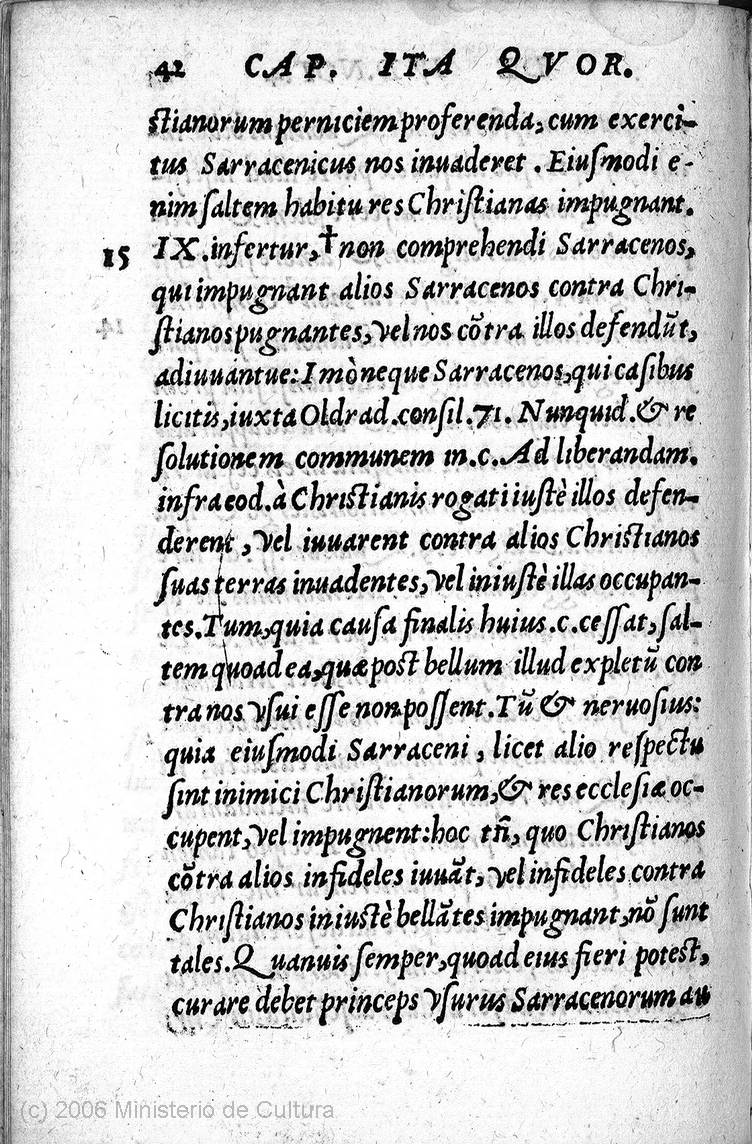 42 CAP. ITA QVOR.
ſtianorum perniciem proferenda, cum exerci-
tus Sarracenicus nos inuaderet . Eiuſmodi e-
nim ſaltem habitu res Chriſtianas impugnant.
15 IX. infertur, † non comprehendi Sarracenos,
qui impugnant alios Sarracenos contra Chri-
ſtianos pugnantes, vel nos cõtra illos defendũt,
adiuuantue: Imò neque Sarracenos, qui caſibus
licitis, iuxta Oldrad. conſil. 71. Nunquid. & re
ſolutionem communem in. c. Ad liberandam.
infra eod. à Chriſtianis rogati iuſtè illos defen-
derent , vel iuuarent contra alios Chriſtianos
ſuas terras inuadentes, vel iniuſtè illas occupan-
tes. Tum, quia cauſa finalis huius. c. ceſſat, ſal-
tem quoad ea, quæ poſt bellum illud expletũ con
tra nos vſui eſſe non poſſent. Tũ & neruoſius:
quia eiuſmodi Sarraceni , licet alio reſpectu
ſint inimici Chriſtianorum, & res eccleſiæ oc-
cupent, vel impugnent: hoc tñ, quo Chriſtianos
cõtra alios infideles iuuãt, vel infideles contra
Chriſtianos iniuſtè bellãtes impugnant, nõ ſunt
tales. Quanuis ſemper, quoad eius fieri poteſt,
curare debet princeps vſurus Sarracenorum au
(c) 2006 Ministerio de Cultura